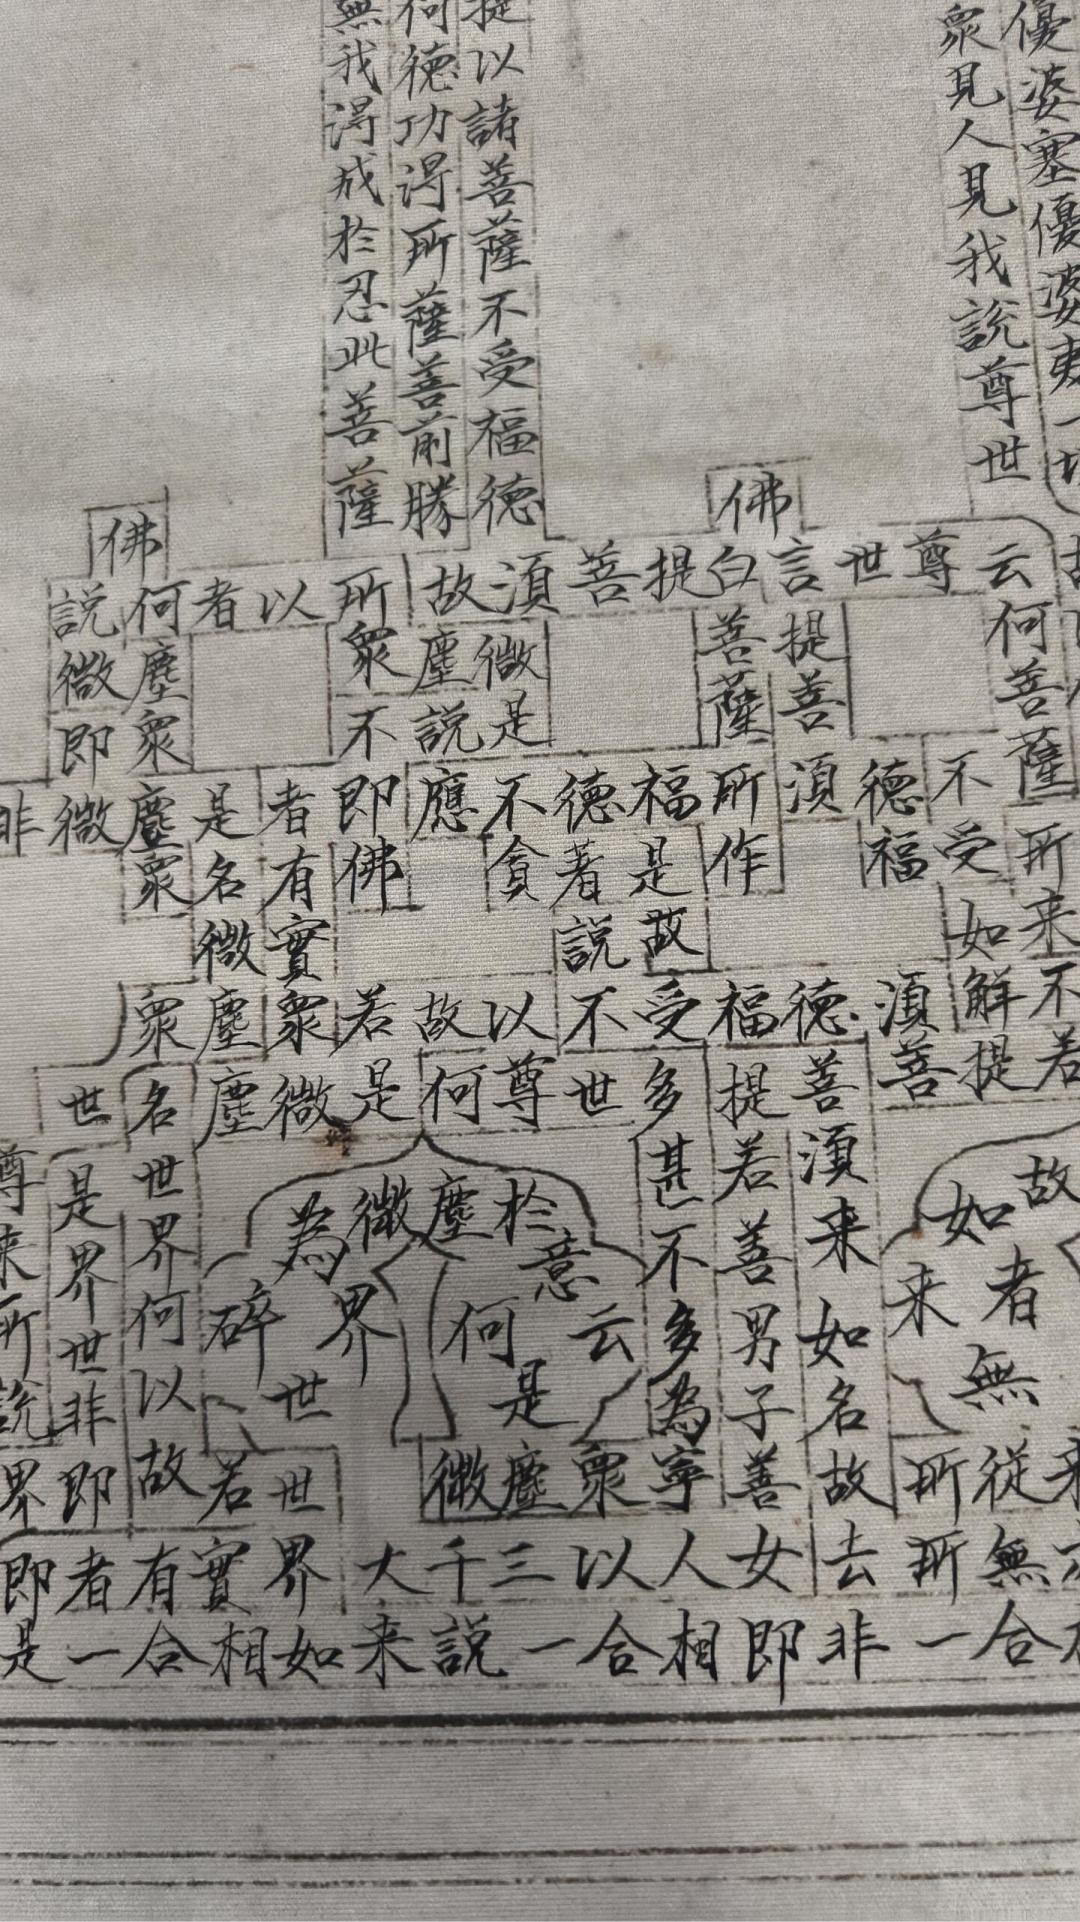 優婆塞優婆夷一切
衆見人見我説尊世
提以諸菩薩不受福德
何德功得所薩菩前勝
無我得成於忍此菩薩
佛 佛
説何者以所故須菩提白言世尊云
微塵衆塵微菩提何
即衆不説是薩善菩薩
非微塵是者即應不德福所須德不
衆名有佛貪著是作福受所
微實説故如来
衆塵衆若故以不受福德須解不
世名塵微是何尊世多提善菩提若
尊是世甚若須
来界界為微塵於不善来如故
所世何碎界何意云多男如来者
説非以世是為子名無
界即故若世微塵衆寧善故所從来
即者有實界大千三以人女去所無
是一合相如来説一合相即非一合